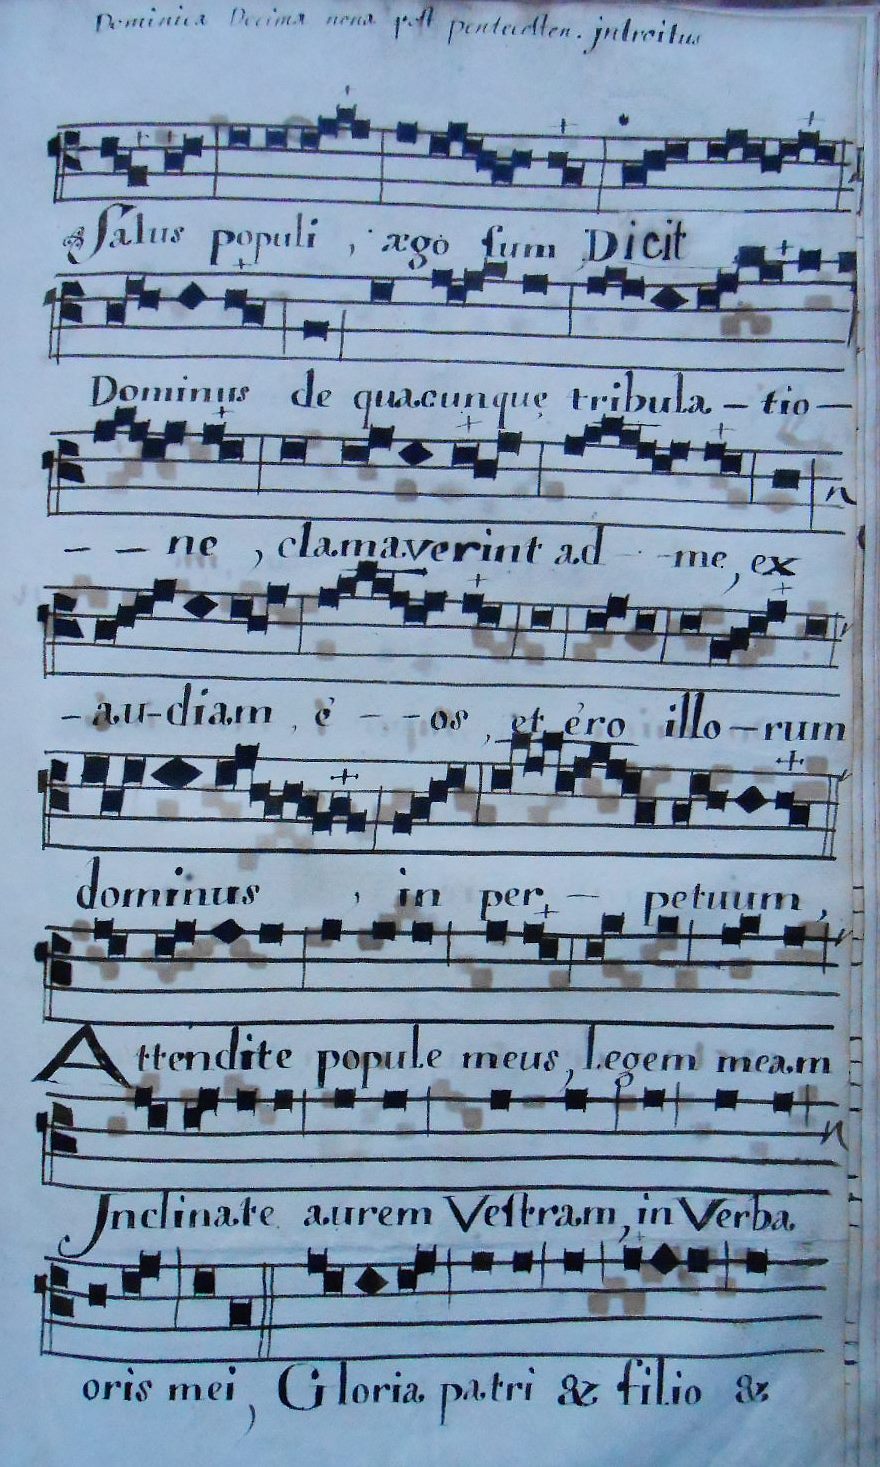 Dominica Decima nona post pentecosten. introitus
Salus populi, ægo sum Dicit
Dominus de quacunque tribula - tio -
- - ne, clamaverint ad me, ex
- au - diam é - - os, et éro illo - rum
dominus, in per - petuum,
Attendite popule meus, legem meam
Inclinate aurem Vestram, in Verba
oris mei, Gloria patri & filio &